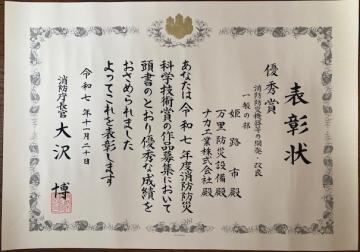 表彰状
優秀賞
消防防災機器等の開発・改良
一般の部
姫路市殿
万里防災設備殿
ナカ工業株式会社殿
あなたは令和七年度消防防災
科学技術賞の作品募集において
頭書のとおり優秀な成績を
おさめられました
よってこれを表彰します
令和七年十一月二十日
消防庁長官 大沢博